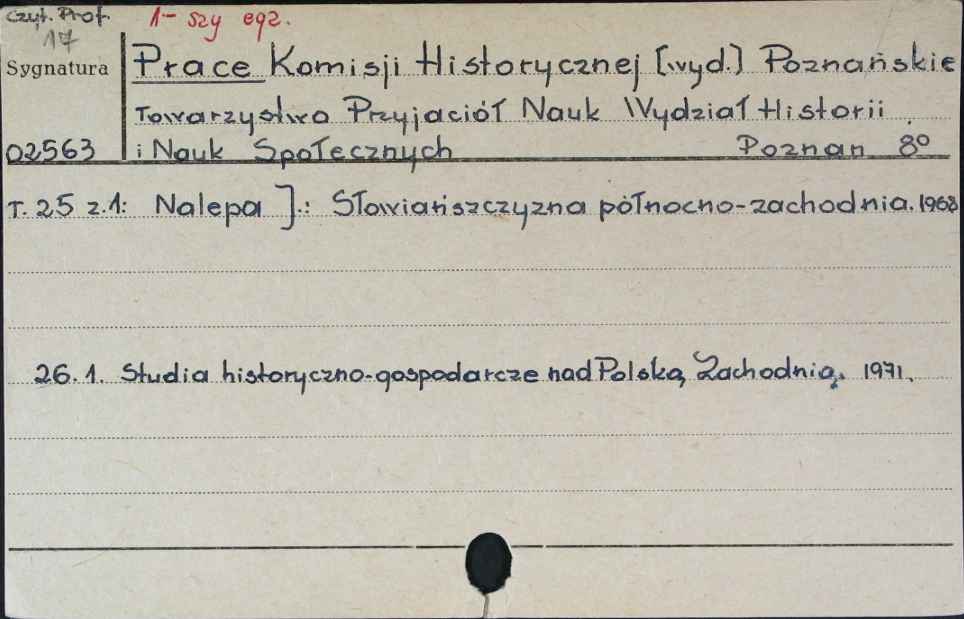 Czyt. Prof. 1-szy egz.
17
Sygnatura Prace Komisji Historycznej [wyd.] Poznańskie
Towarzystwo Przyjaciół Nauk Wydział Historii
02563 i Nauk Społecznych Poznan 8°
T. 25 z.1: Nalepa J.: Słowiańszczyzna północno-zachodnia. 1968
26.1. Studia historyczno-gospodarcze nad Polską Zachodnią. 1971.